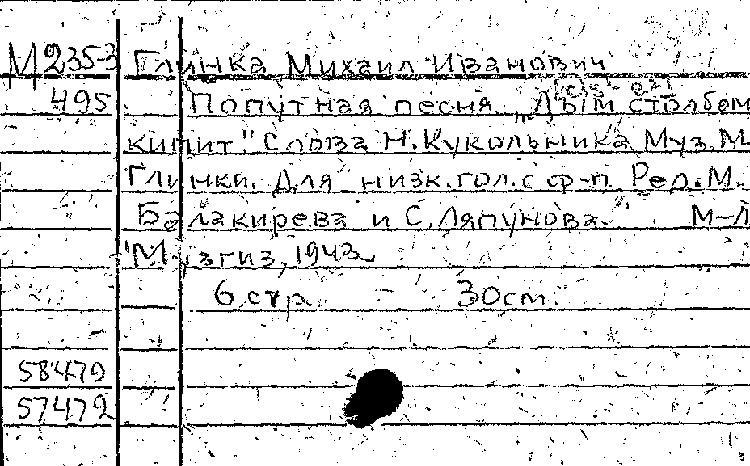 М2353 Глинка Михаил Иванович
495 Попутная песня „Дым столбом
кипит" Слова Н.Кукольника Муз.М.
Глинки. Для низк.гол.с ф-п. Ред.М.
Балакирева и С.Ляпунова. М-Л
"Музгиз, 1943
6 стр. - 30cm.
58479
57479